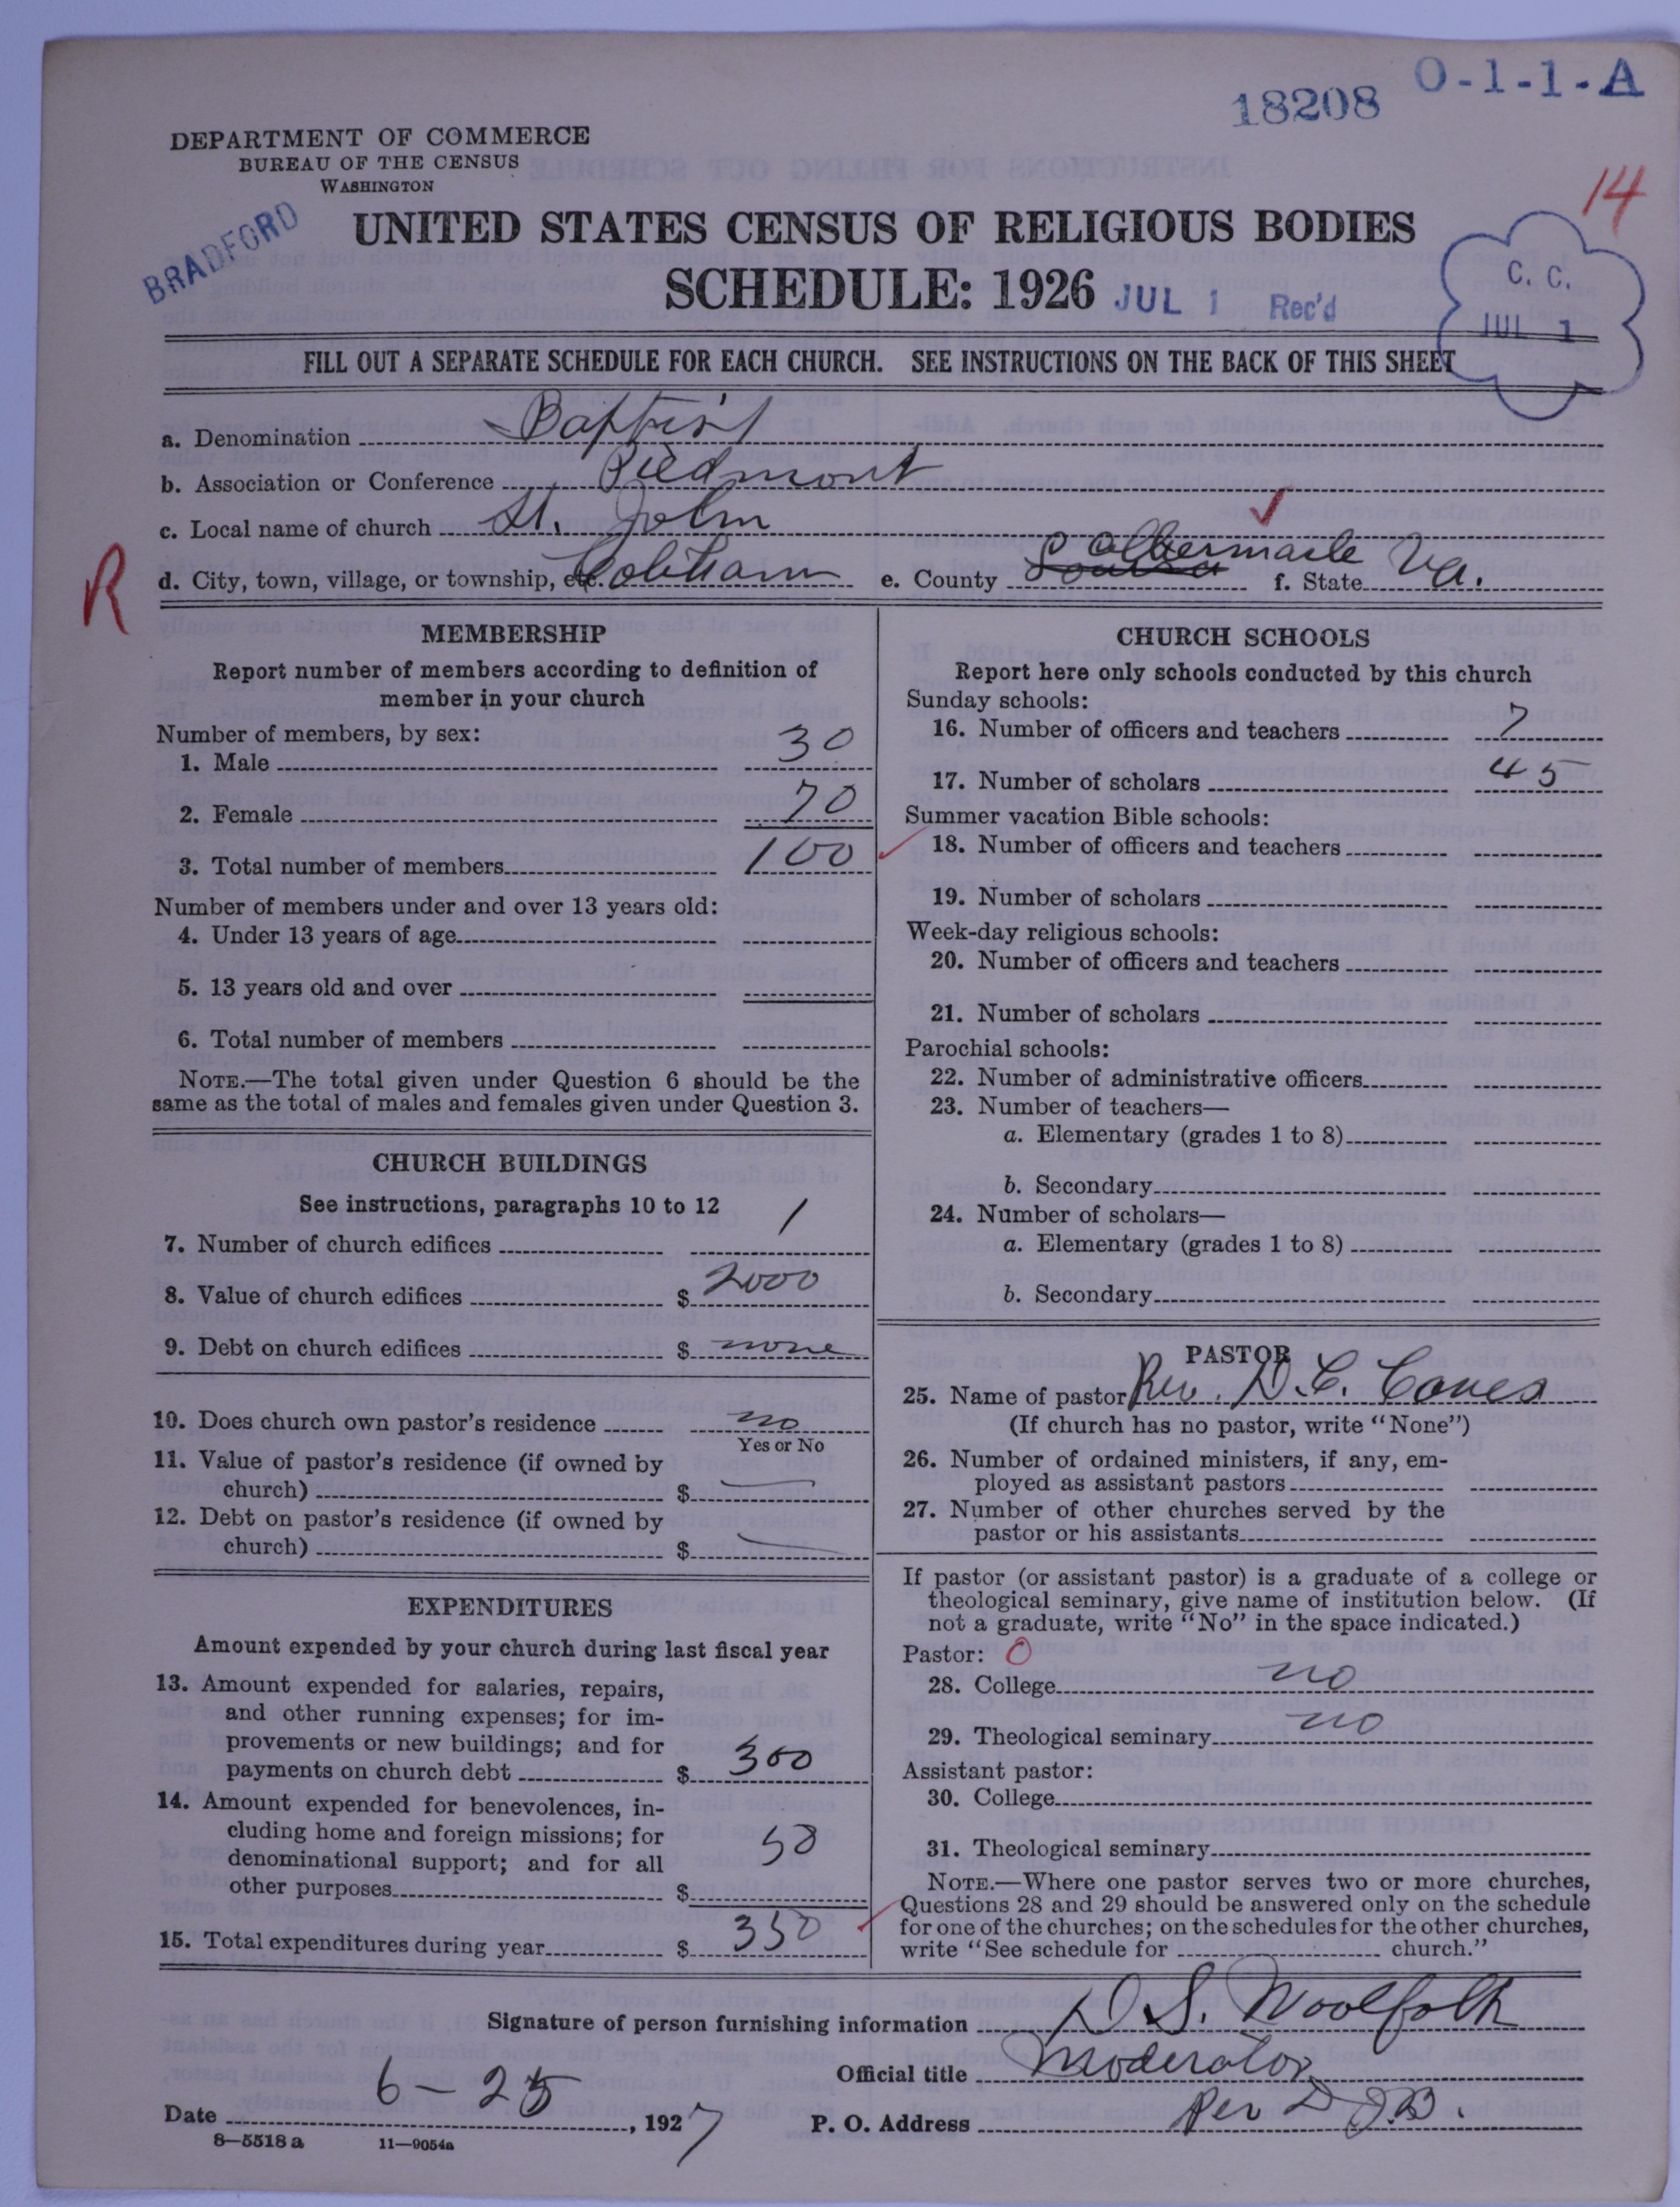 18208 O-1-1-A
14
DEPARTMENT OF COMMERCE
BUREAU OF THE CENSUS
WASHINGTON
BRADFORD
UNITED STATES CENSUS OF RELIGIOUS BODIES
SCHEDULE: 1926
JUL 1 Rec'd
C. C.
JUL 1
FILL OUT A SEPARATE SCHEDULE FOR EACH CHURCH. SEE INSTRUCTIONS ON THE BACK OF THIS SHEET
a. Denomination Baptist
b. Association or Conference Piedmont
c. Local name of church St. John
R
d. City, town, village, or township, etc. Cobham e. County Louisa Albermarle f. State Va.
MEMBERSHIP
Report number of members according to definition of
member in your church
Number of members, by sex:
1. Male 30
2. Female 70
3. Total number of members 100
Number of members under and over 13 years old:
4. Under 13 years of age
5. 13 years old and over
6. Total number of members
NOTE.—The total given under Question 6 should be the
same as the total of males and females given under Question 3.
CHURCH BUILDINGS
See instructions, paragraphs 10 to 12
7. Number of church edifices 1
8. Value of church edifices $ 2000
9. Debt on church edifices $ none
10. Does church own pastor's residence no
Yes or No
11. Value of pastor's residence (if owned by
church) $
12. Debt on pastor's residence (if owned by
church) $
EXPENDITURES
Amount expended by your church during last fiscal year
13. Amount expended for salaries, repairs,
and other running expenses; for im-
provements or new buildings; and for
payments on church debt $ 300
14. Amount expended for benevolences, in-
cluding home and foreign missions; for
denominational support; and for all
other purposes $ 50
15. Total expenditures during year $ 350
CHURCH SCHOOLS
Report here only schools conducted by this church
Sunday schools:
16. Number of officers and teachers 7
17. Number of scholars 45
Summer vacation Bible schools:
18. Number of officers and teachers
19. Number of scholars
Week-day religious schools:
20. Number of officers and teachers
21. Number of scholars
Parochial schools:
22. Number of administrative officers
23. Number of teachers—
a. Elementary (grades 1 to 8)
b. Secondary
24. Number of scholars—
a. Elementary (grades 1 to 8)
b. Secondary
PASTOR
25. Name of pastor Rev. D. C. Coves
(If church has no pastor, write "None")
26. Number of ordained ministers, if any, em-
ployed as assistant pastors
27. Number of other churches served by the
pastor or his assistants
If pastor (or assistant pastor) is a graduate of a college or
theological seminary, give name of institution below. (If
not a graduate, write "No" in the space indicated.)
Pastor: 0
28. College no
29. Theological seminary no
Assistant pastor:
30. College
31. Theological seminary
NOTE.—Where one pastor serves two or more churches,
Questions 28 and 29 should be answered only on the schedule
for one of the churches; on the schedules for the other churches,
write "See schedule for church."
Signature of person furnishing information D. S. Woolfolk
Official title Moderator
Date 6-25, 1927 P. O. Address Per D J.B.
8—5518 a 11—9054a